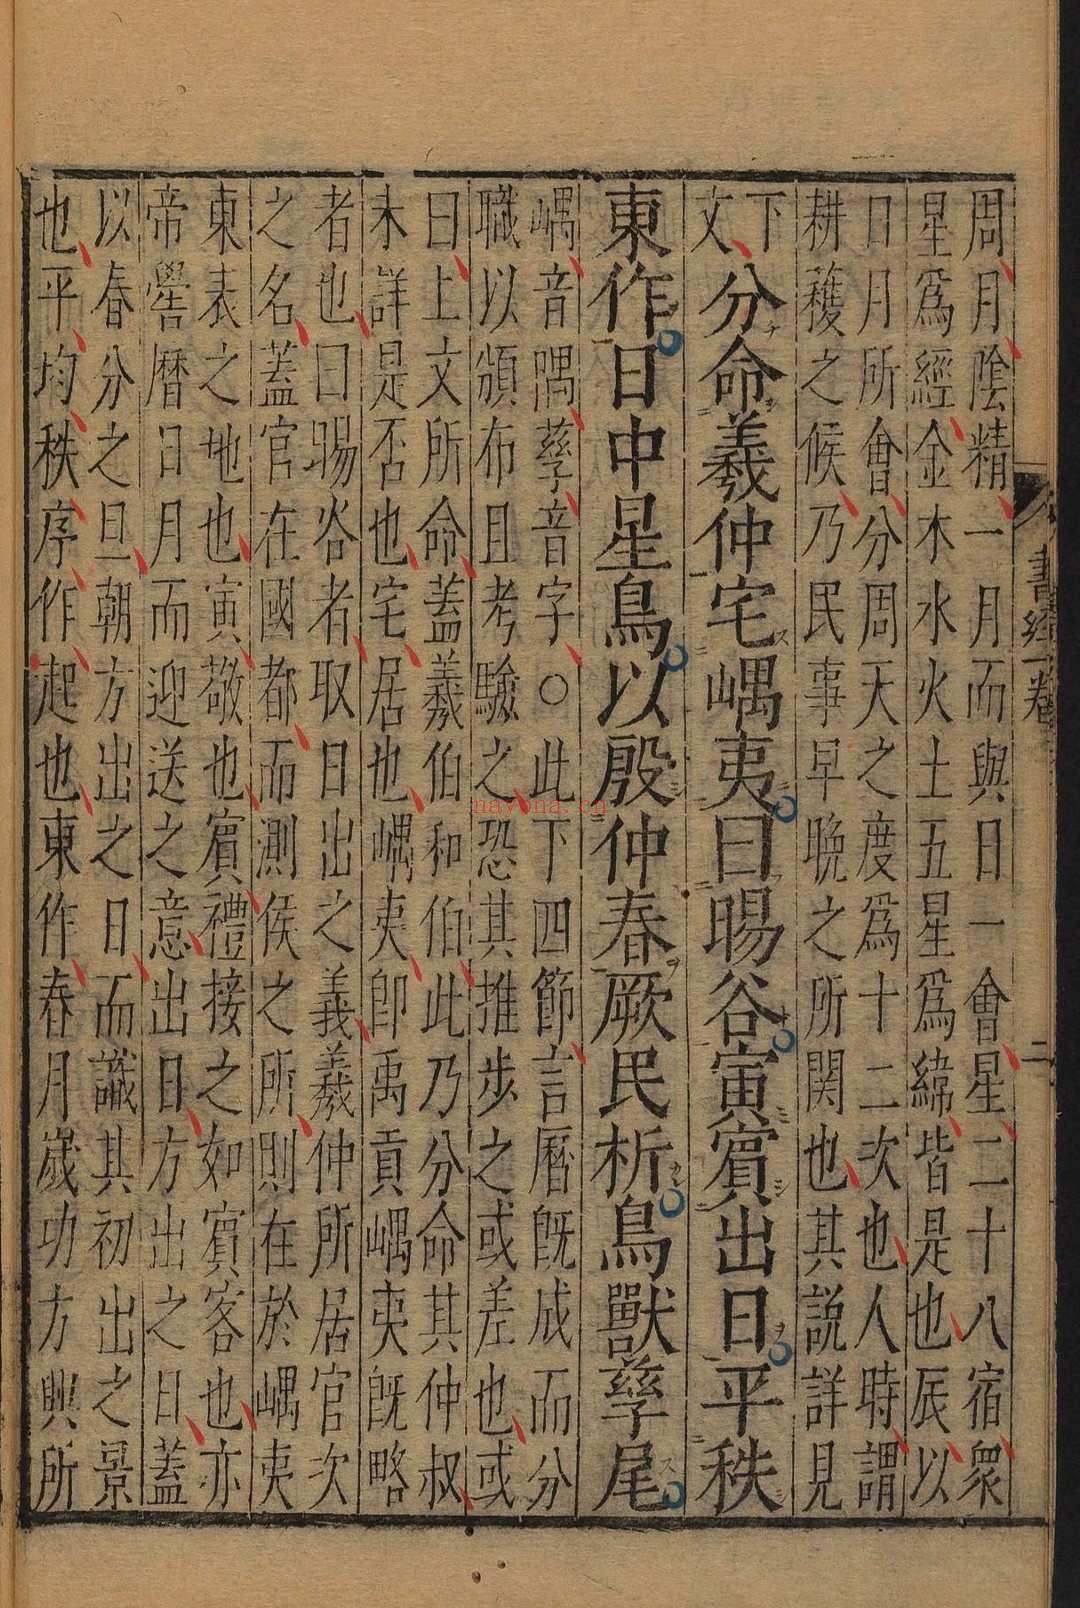 周月陰精一月而與日一會星二十八宿衆
星爲經金木水火土五星爲緯皆是也辰以
日月所會分周天之度爲十二次也人時謂
耕穫之候乃民事早晚之所関也其説詳見
下
文
分命羲仲宅嵎夷曰暘谷寅賓出日平秩
東作日中星鳥以殷仲春厥民析鳥獸孳尾
嵎音隅孳音字○此下四節言曆旣成而分
職以頒布且考驗之恐其推步之或差也或
曰上文所命蓋羲伯和伯此乃分命其仲叔
未詳是否也宅居也嵎夷卽禹貢嵎夷旣略
者也曰暘谷者取日出之義羲仲所居官次
之名蓋官在國都而測侯之所則在於嵎夷
東表之地也寅敬也賓禮接之如賓客也亦
帝嚳曆日月而迎送之意出日方出之日蓋
以春分之旦朝方出之日而識其初出之景
也平均秩序作起也東作春月歲功方興所
書經一卷
二
nayona.cn